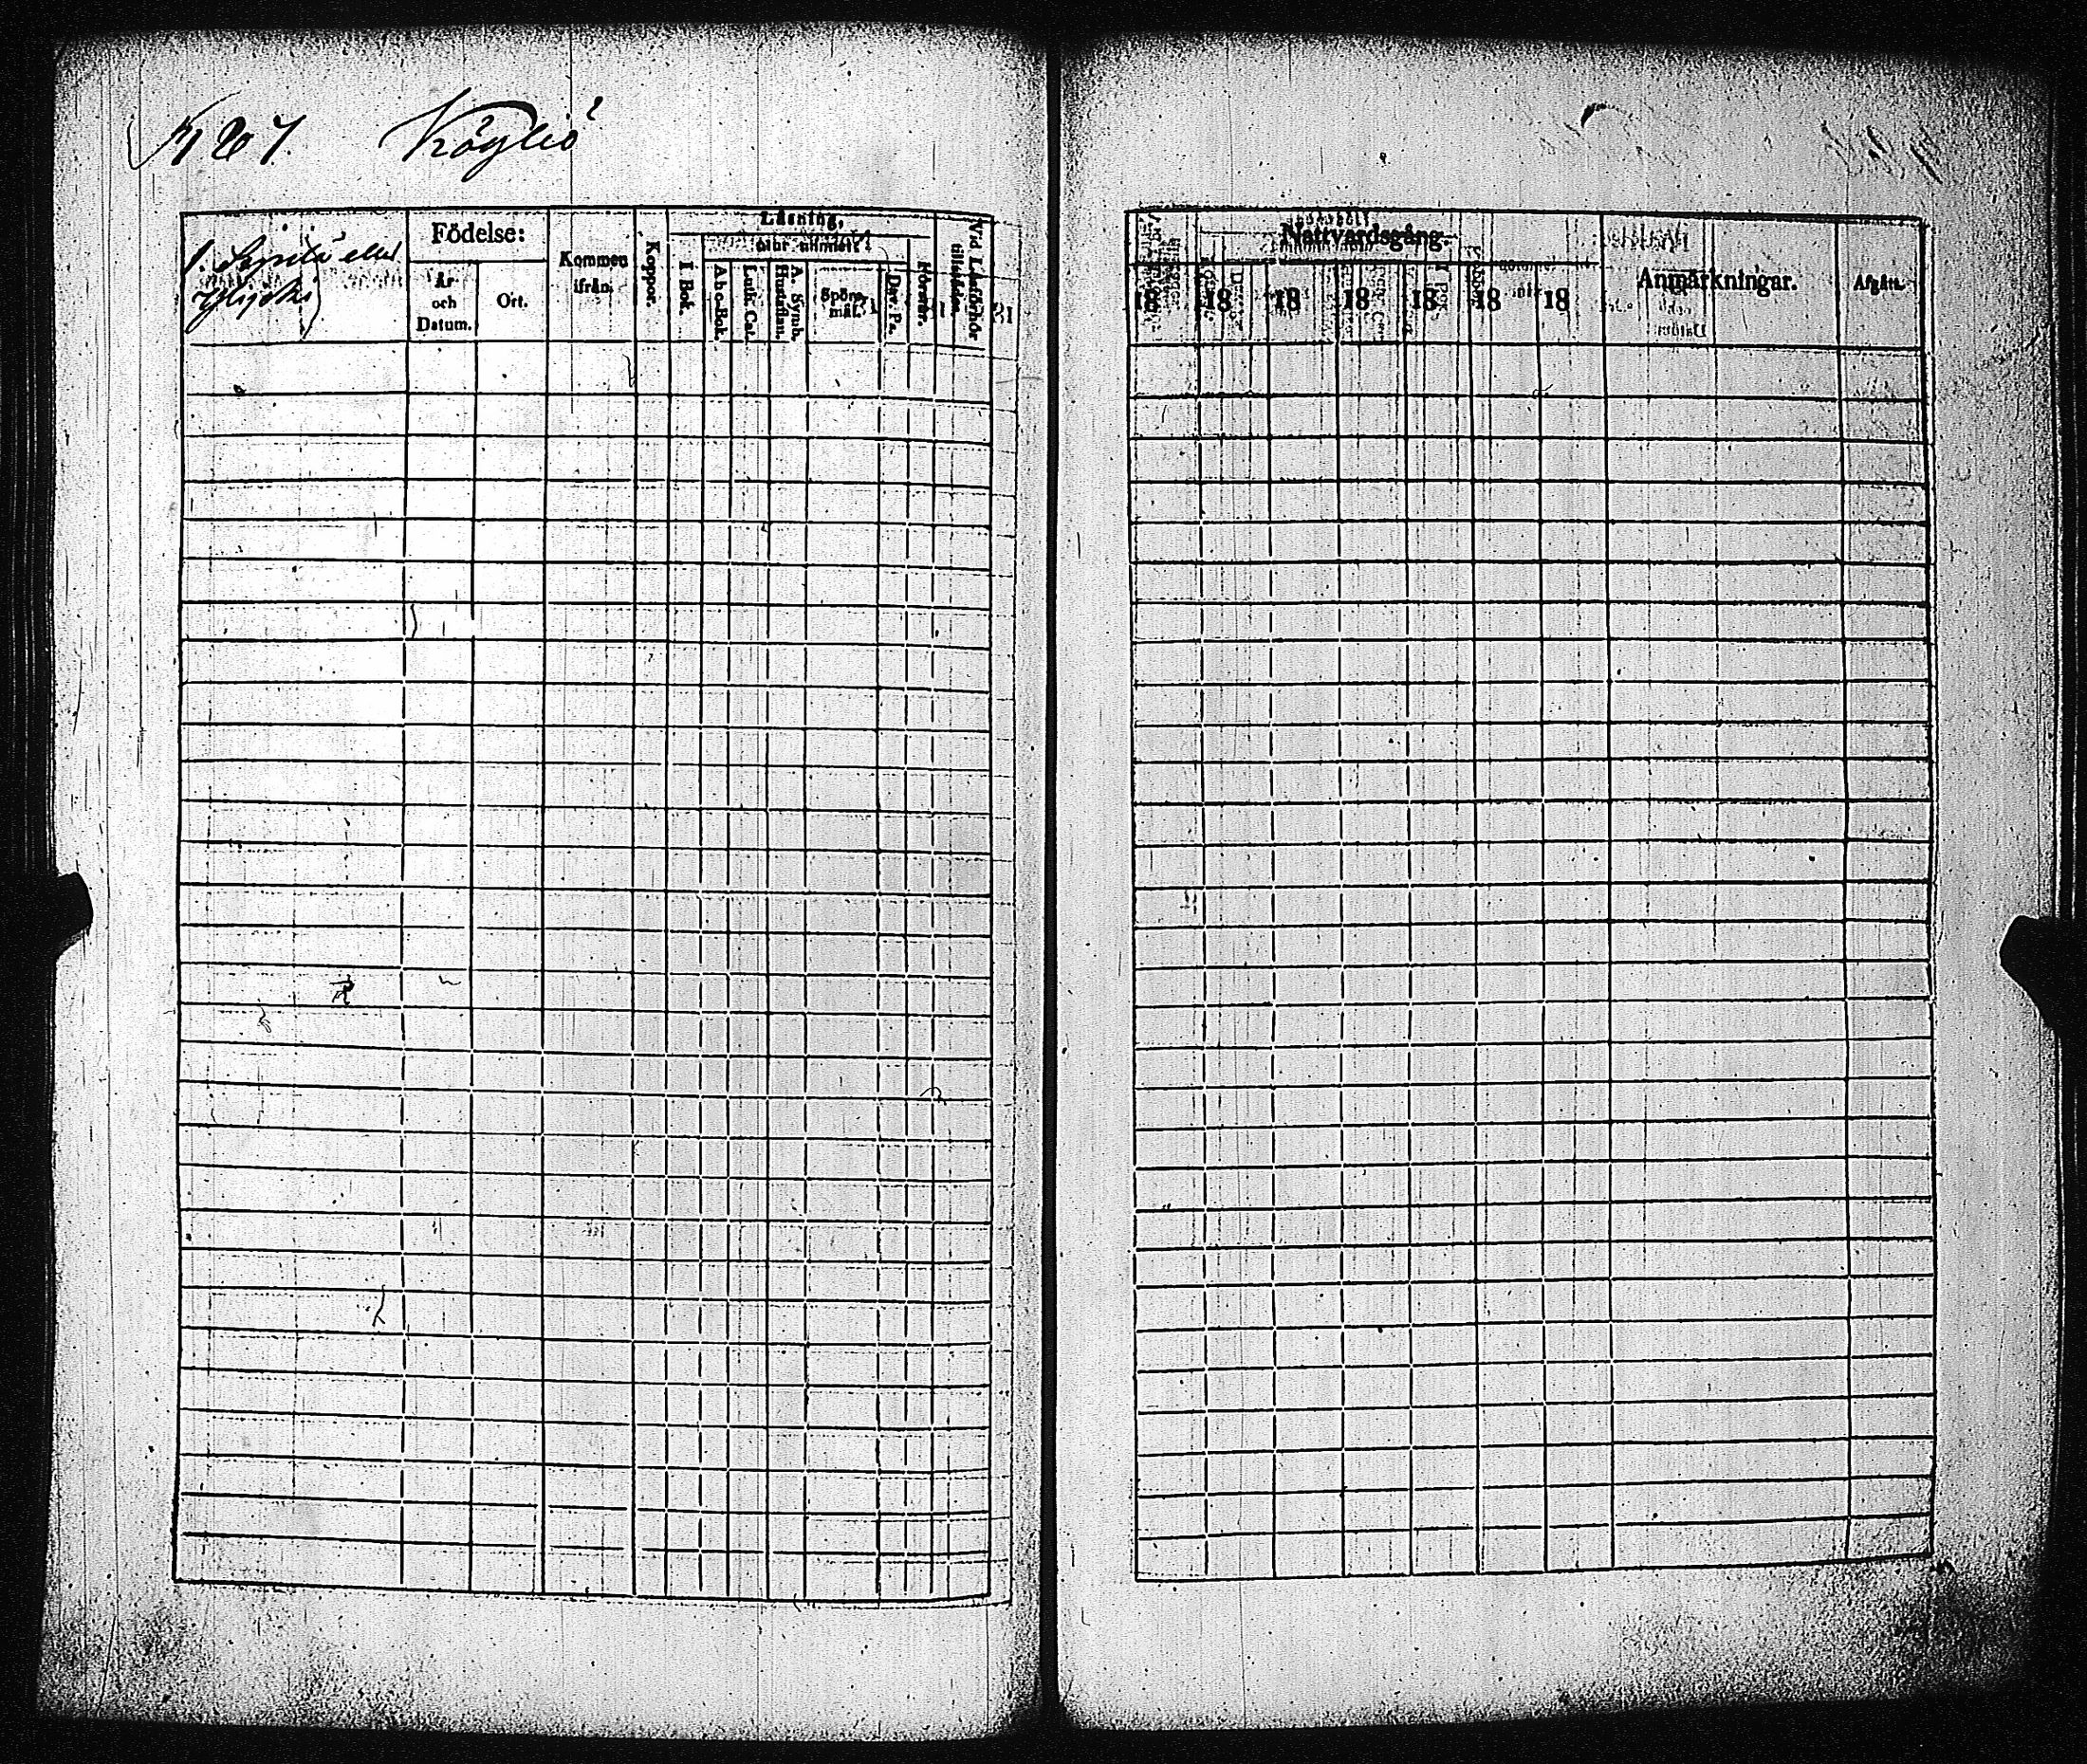 Kiöyliö
eller
Ylijoki
Födelse:
År
och
Datum.
Ort.
Kommen
ifrån.
Koppor.
Läsning,
I Bok.
Abc-Bok.
Luth. Cat.
A. Symb.
Hustaflan.
Spörs-
mål.
Dav. Ps.
Vid Läsförhör
tillstädes.
Nattvardsgång.
18 18 18 18 18 18 18
Anmärkningar.
Afgått.